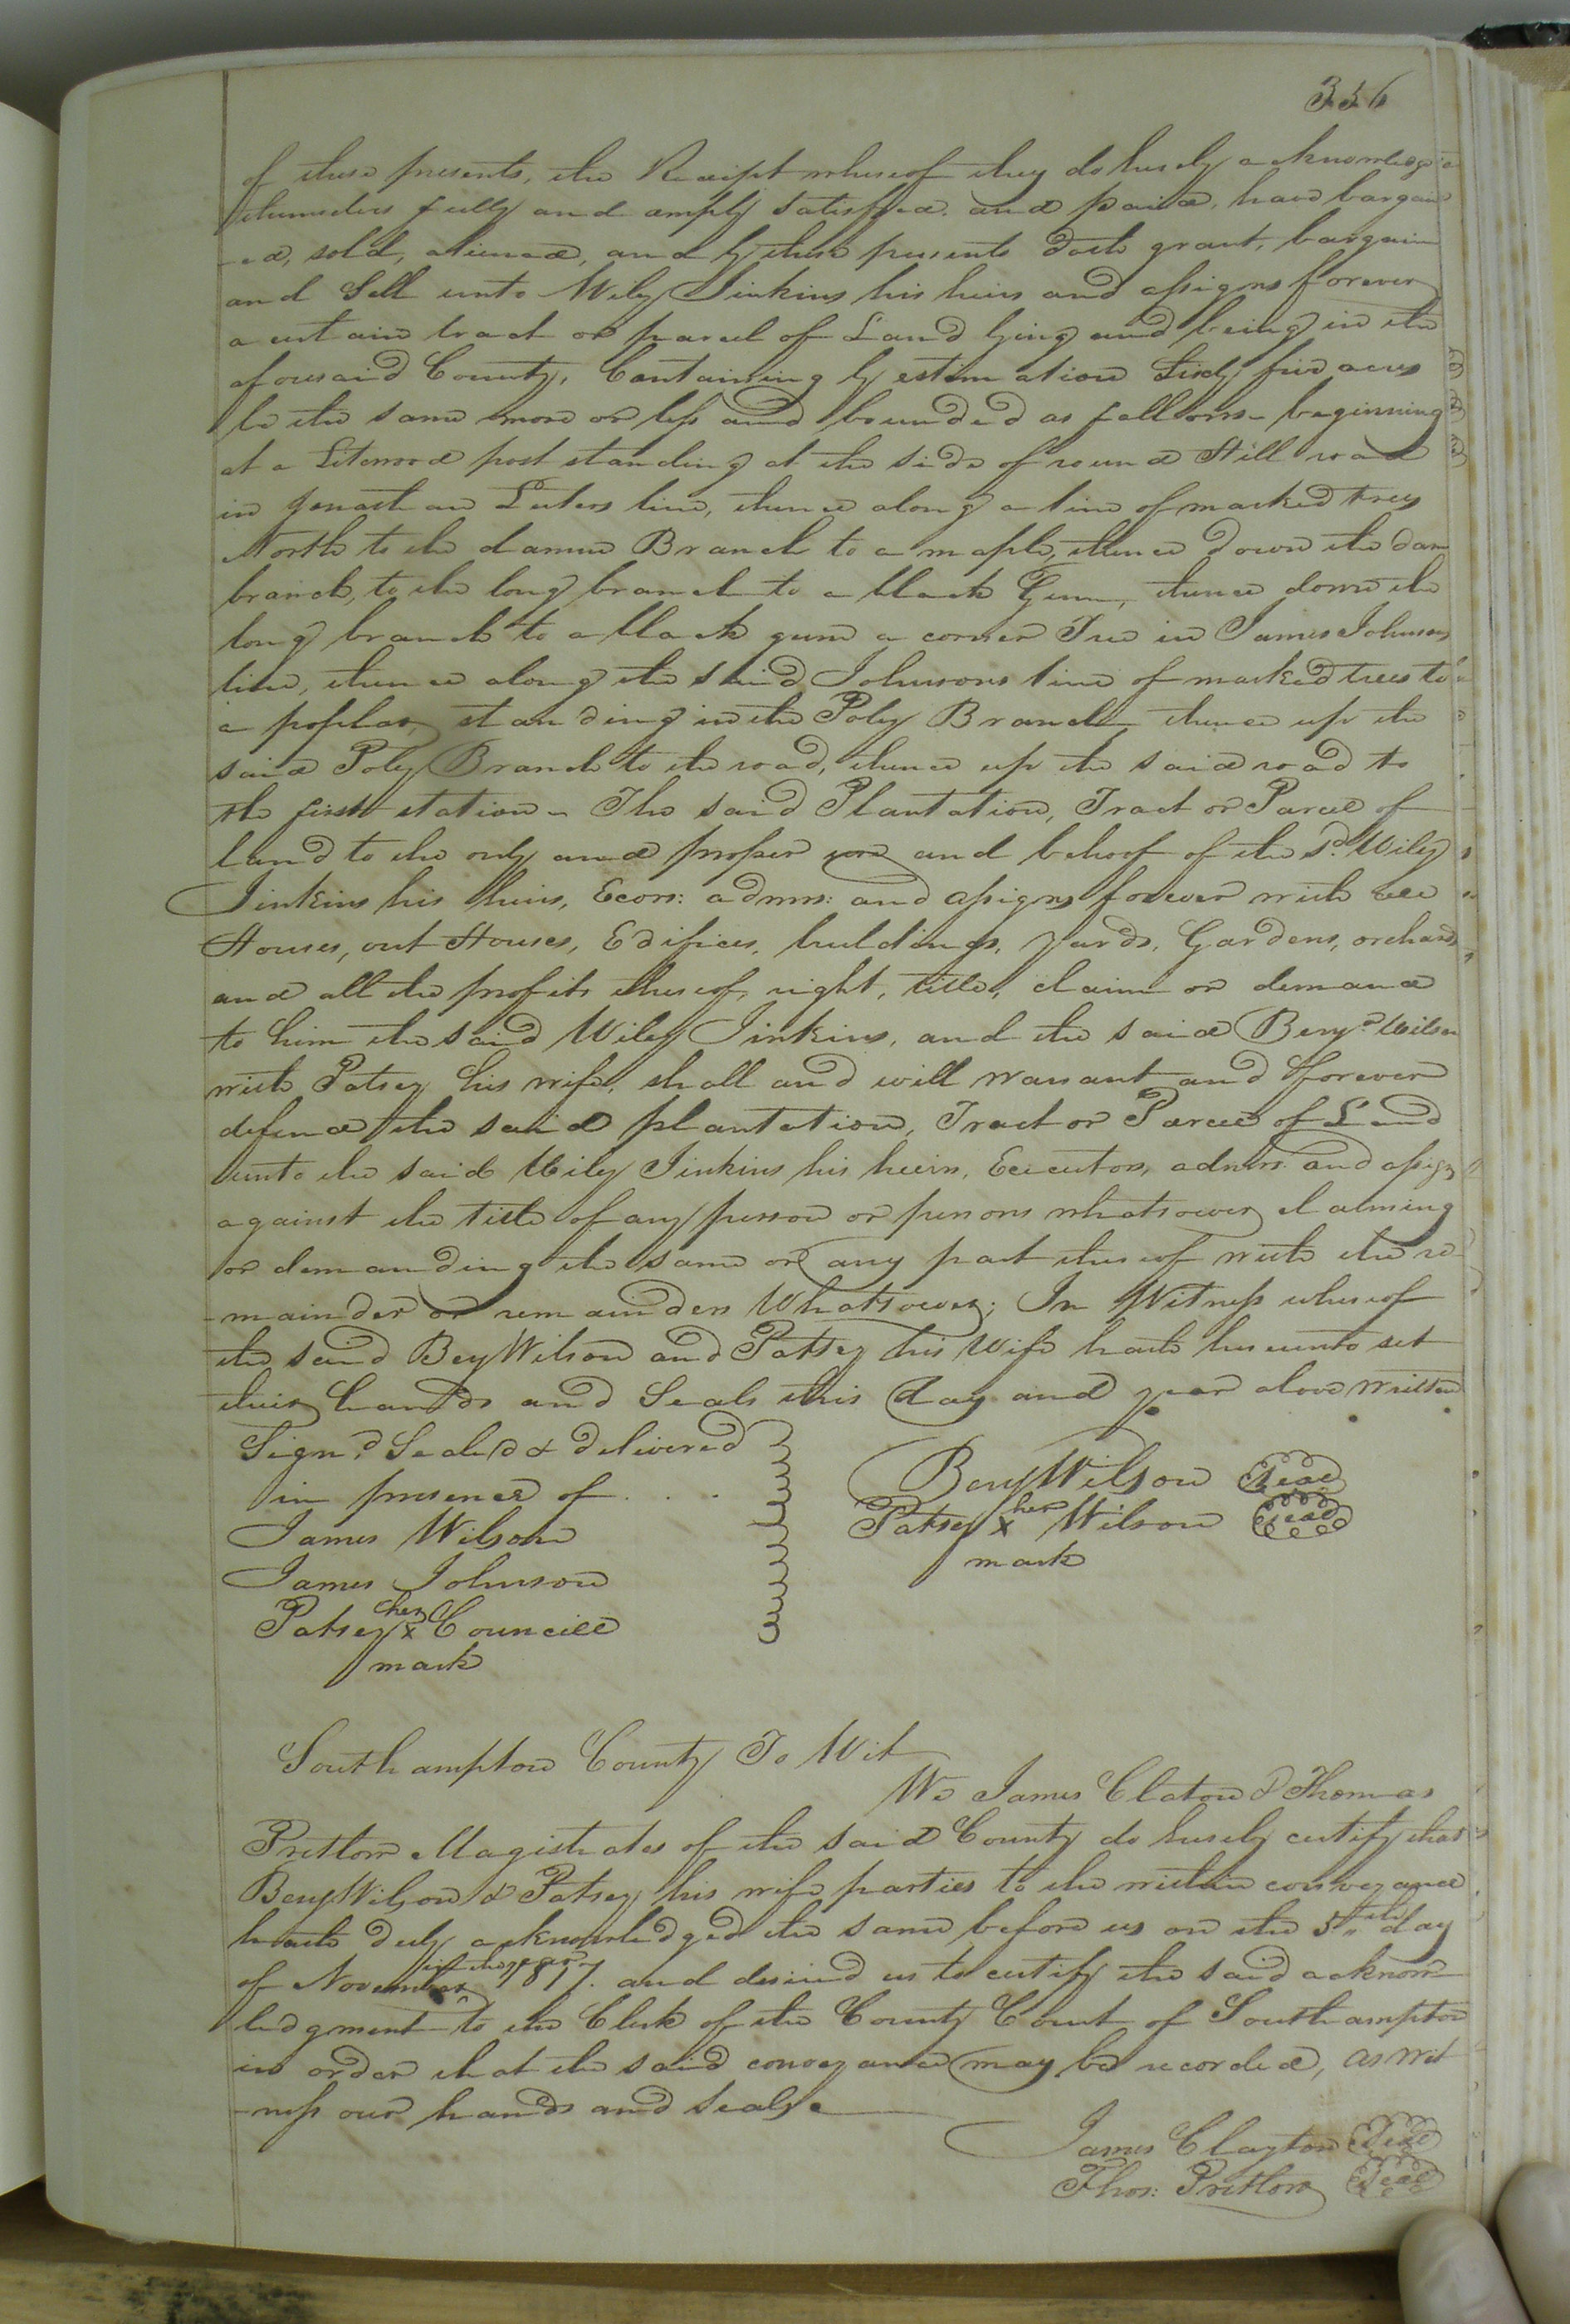 336
of these presents, the Receipt whereof they do hereby acknowledge
themselves fully and amply satisfyed and paid, have bargain
-ed, sold, aliened, and by these presents doth grant, bargain
and Sell unto Wiley Jinkins his heirs and assigns forever
a certain tract or parcel of Land lying and being in the
aforesaid County, Containing by estimation Sixty five acres
be the same more or less and bounded as follows - beginning
at a Litewood post standing at the side of round Hill road
in Jonathan Luters line, thence along a line of marked trees
North to the damm Branch to a maple, thence down the dam
branch, to the long branch to a black Gum, thence down the
long branch to a black gum a corner Tree in James Johnsons
line, thence along the said Johnsons line of marked trees to
a poplar, standing in the Poly Branch thence up the
said Poly Branch to the road, thence up the said road to
the first station - The said Plantation, Tract or Parcel of
land to the only and proper use and behoof of the sd. Wiley
Jinkins his heirs, Ecors: admrs: and assigns forever with all
Houses, out Houses, Edifices, buildings, Yards, Gardens, orchards
and all the profits thereof, right, title, claim or demand
to him the said Wiley Jinkins, and the said Benjn. Wilson
with Patsey his wife, shall and will warrant and forever
defend the said plantation, Tract or Parcel of Land
unto the said Wiley Jinkins his heirs, Executors, admrs. and assigns
against the title of any person or persons whatsoever claiming
or demanding the same or any part thereof with the re
-mainder or remainders Whatsoever; In Witness whereof
the said Benj Wilson and Patsey his Wife hath hereunto set
their hands and Seals this day and year above written
Sign'd Seal'd & delivered
in presence of . . . .
James Wilson
James Johnson
Patsey her x mark Councill
Benj Wilson Seal
Patsey her x mark Wilson Seal
Southampton County To Wit
We James Claton & Thomas
Pretlow Magistrates of the said County do hereby certify that
Benj Wilson & Patsey his wife parties to the within conveyance
hath duly acknowledged the same before us on the 5th day
of November in the year 1817. and desired us to certify the said acknow
ledgment to the Clerk of the County Court of Southampton
in order that the said conveyance may be recorded, as wit
-ness our hands and seals
James Clayton Seal
Thos: Pretlow Seal